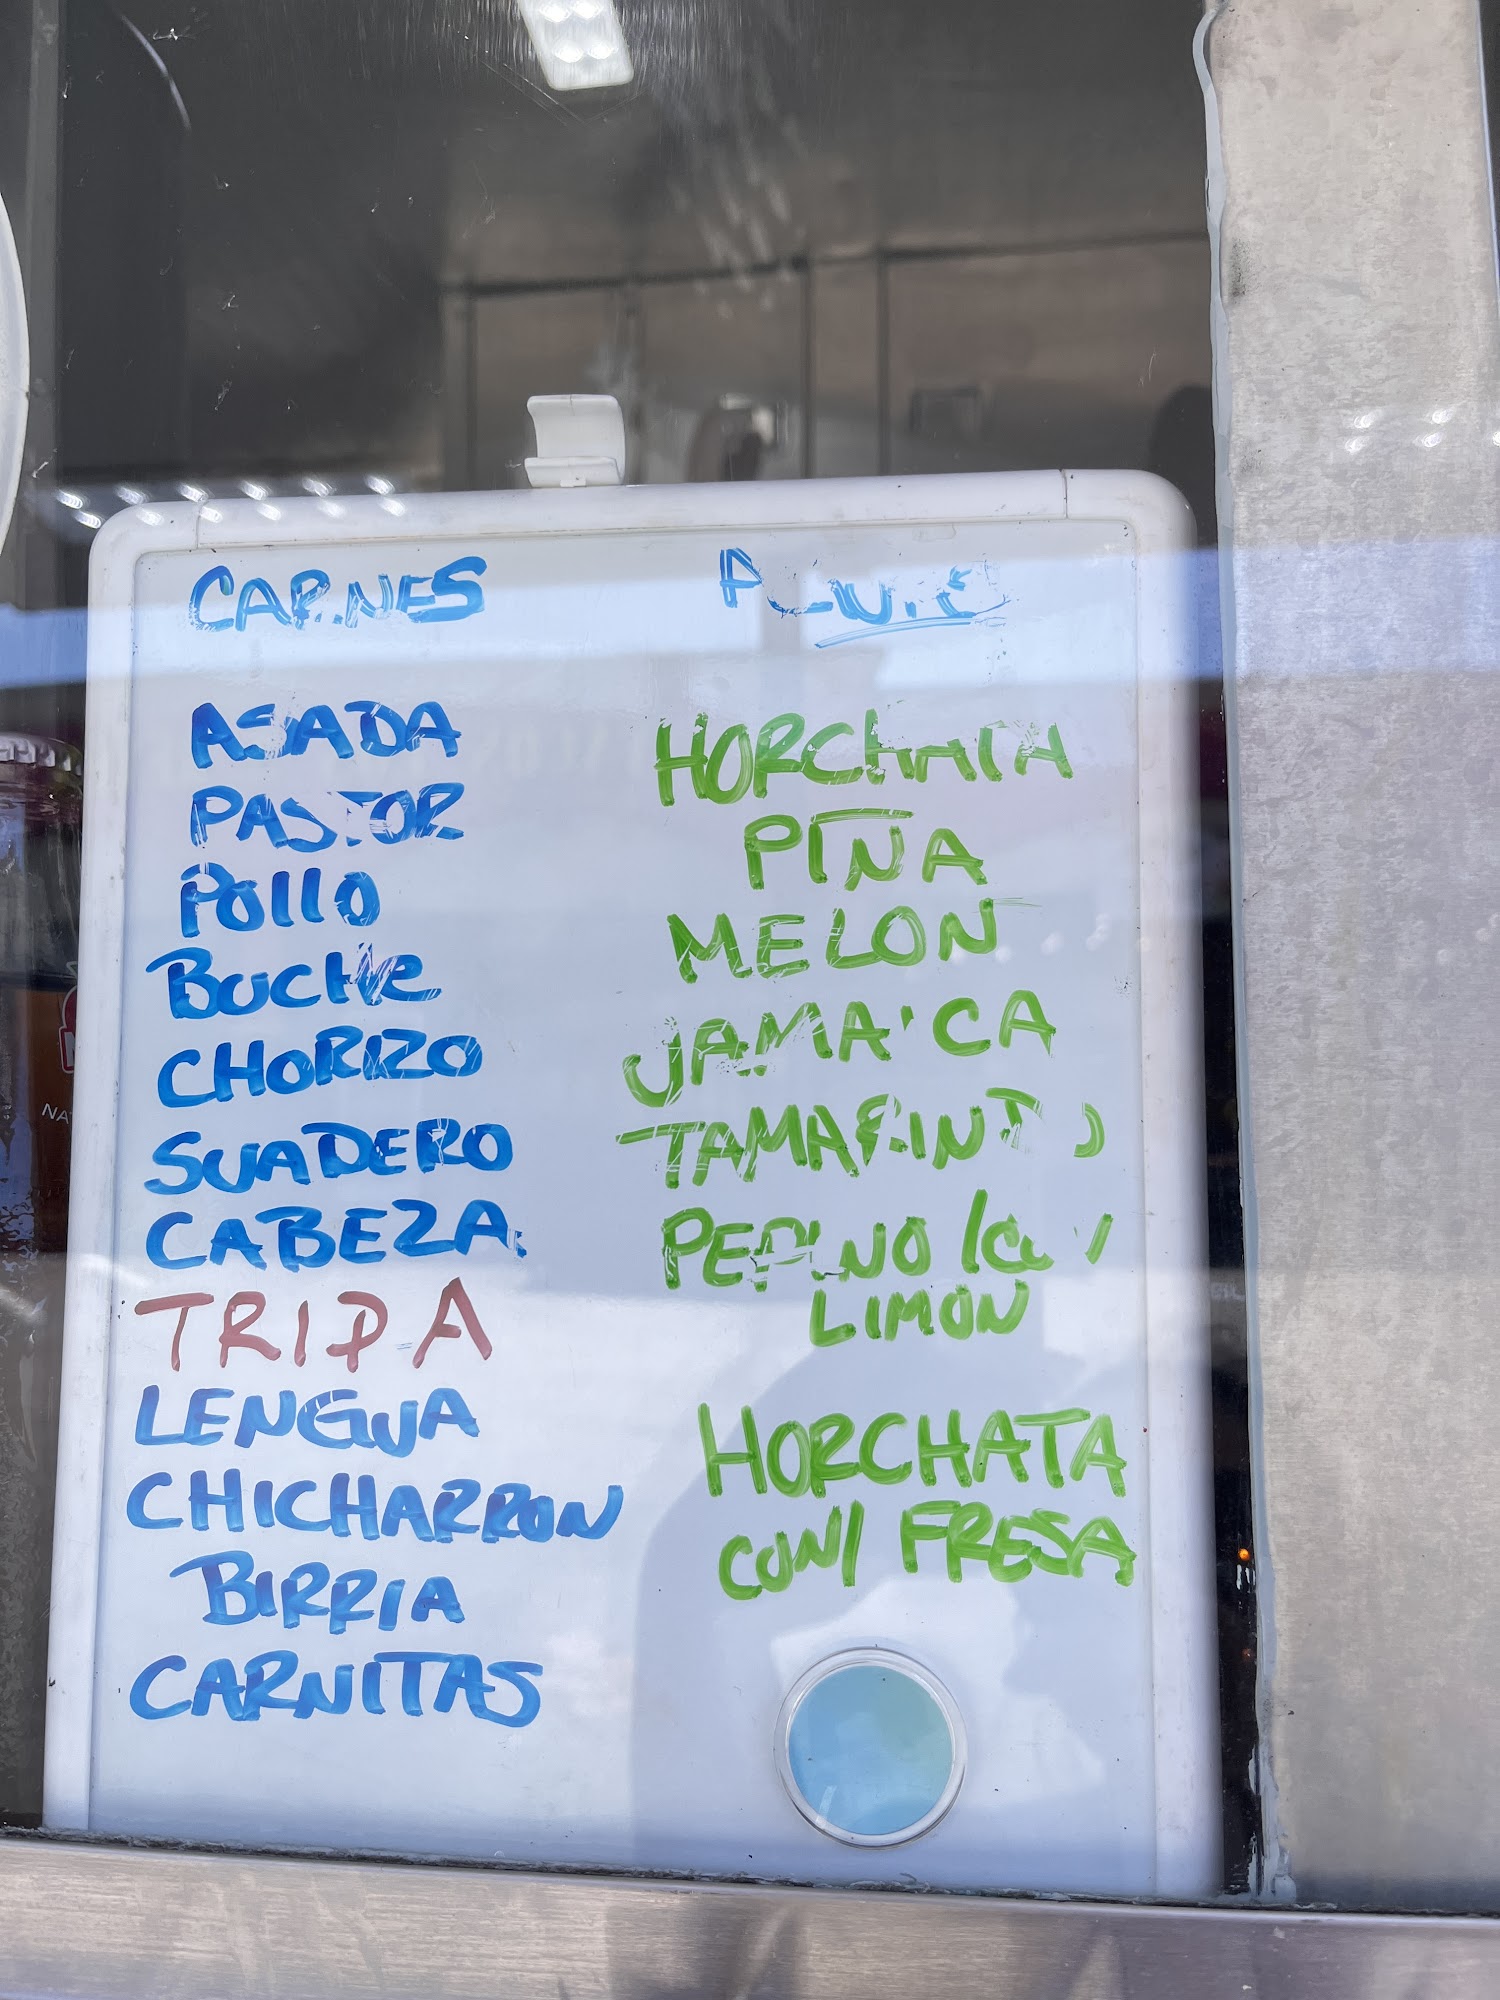 CARNES
ASADA
PASTOR
POLLO
BUCHE
CHORIZO
SUADERO
CABEZA
TRIPA
LENGUA
CHICHARRON
BIRRIA
CARNITAS
HORCHATA
PIÑA
MELON
JAMAICA
TAMARINDO
PEPINO
LIMON
HORCHATA
CON FRESA